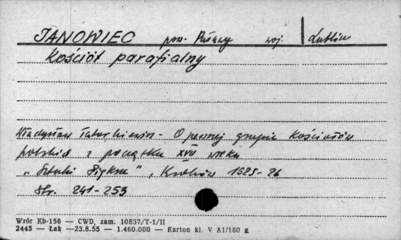 JANOWIEC pow. Puławy woj. Lublin
Kościół parafialny
Władysław Tatarkiewicz - O pewnej grupie kościołów
polskich z początku XVII wieku
„Sztuki Piękne", Kraków 1925-26
Str. 241-253
Wzór Kb-156 — CWD, zam. 10837/T-1/II
2445 — Łak —23.8.55 — 1.460.000 — Karton kl. V A1/180 g